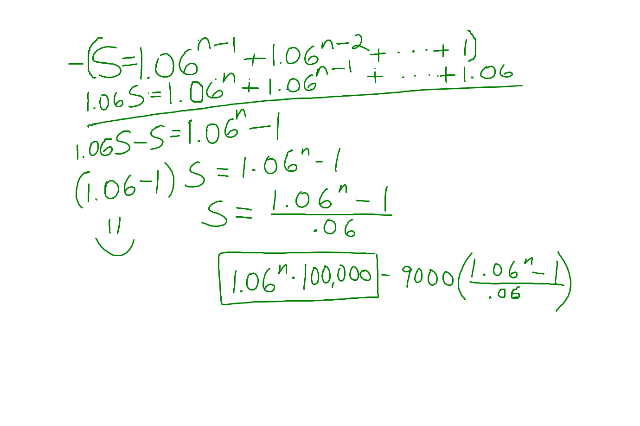 -(S=1.06^{n-1}+1.06^{n-2}+⋯+1)
1.06S=1.06^n+1.06^{n-1}+⋯+1.06
1.06S-S=1.06^n-1
(1.06-1)S=1.06^n-1
S=\frac{1.06^n-1}{.06}
1.06^n·100,000-9000(\frac{1.06^n-1}{.06})